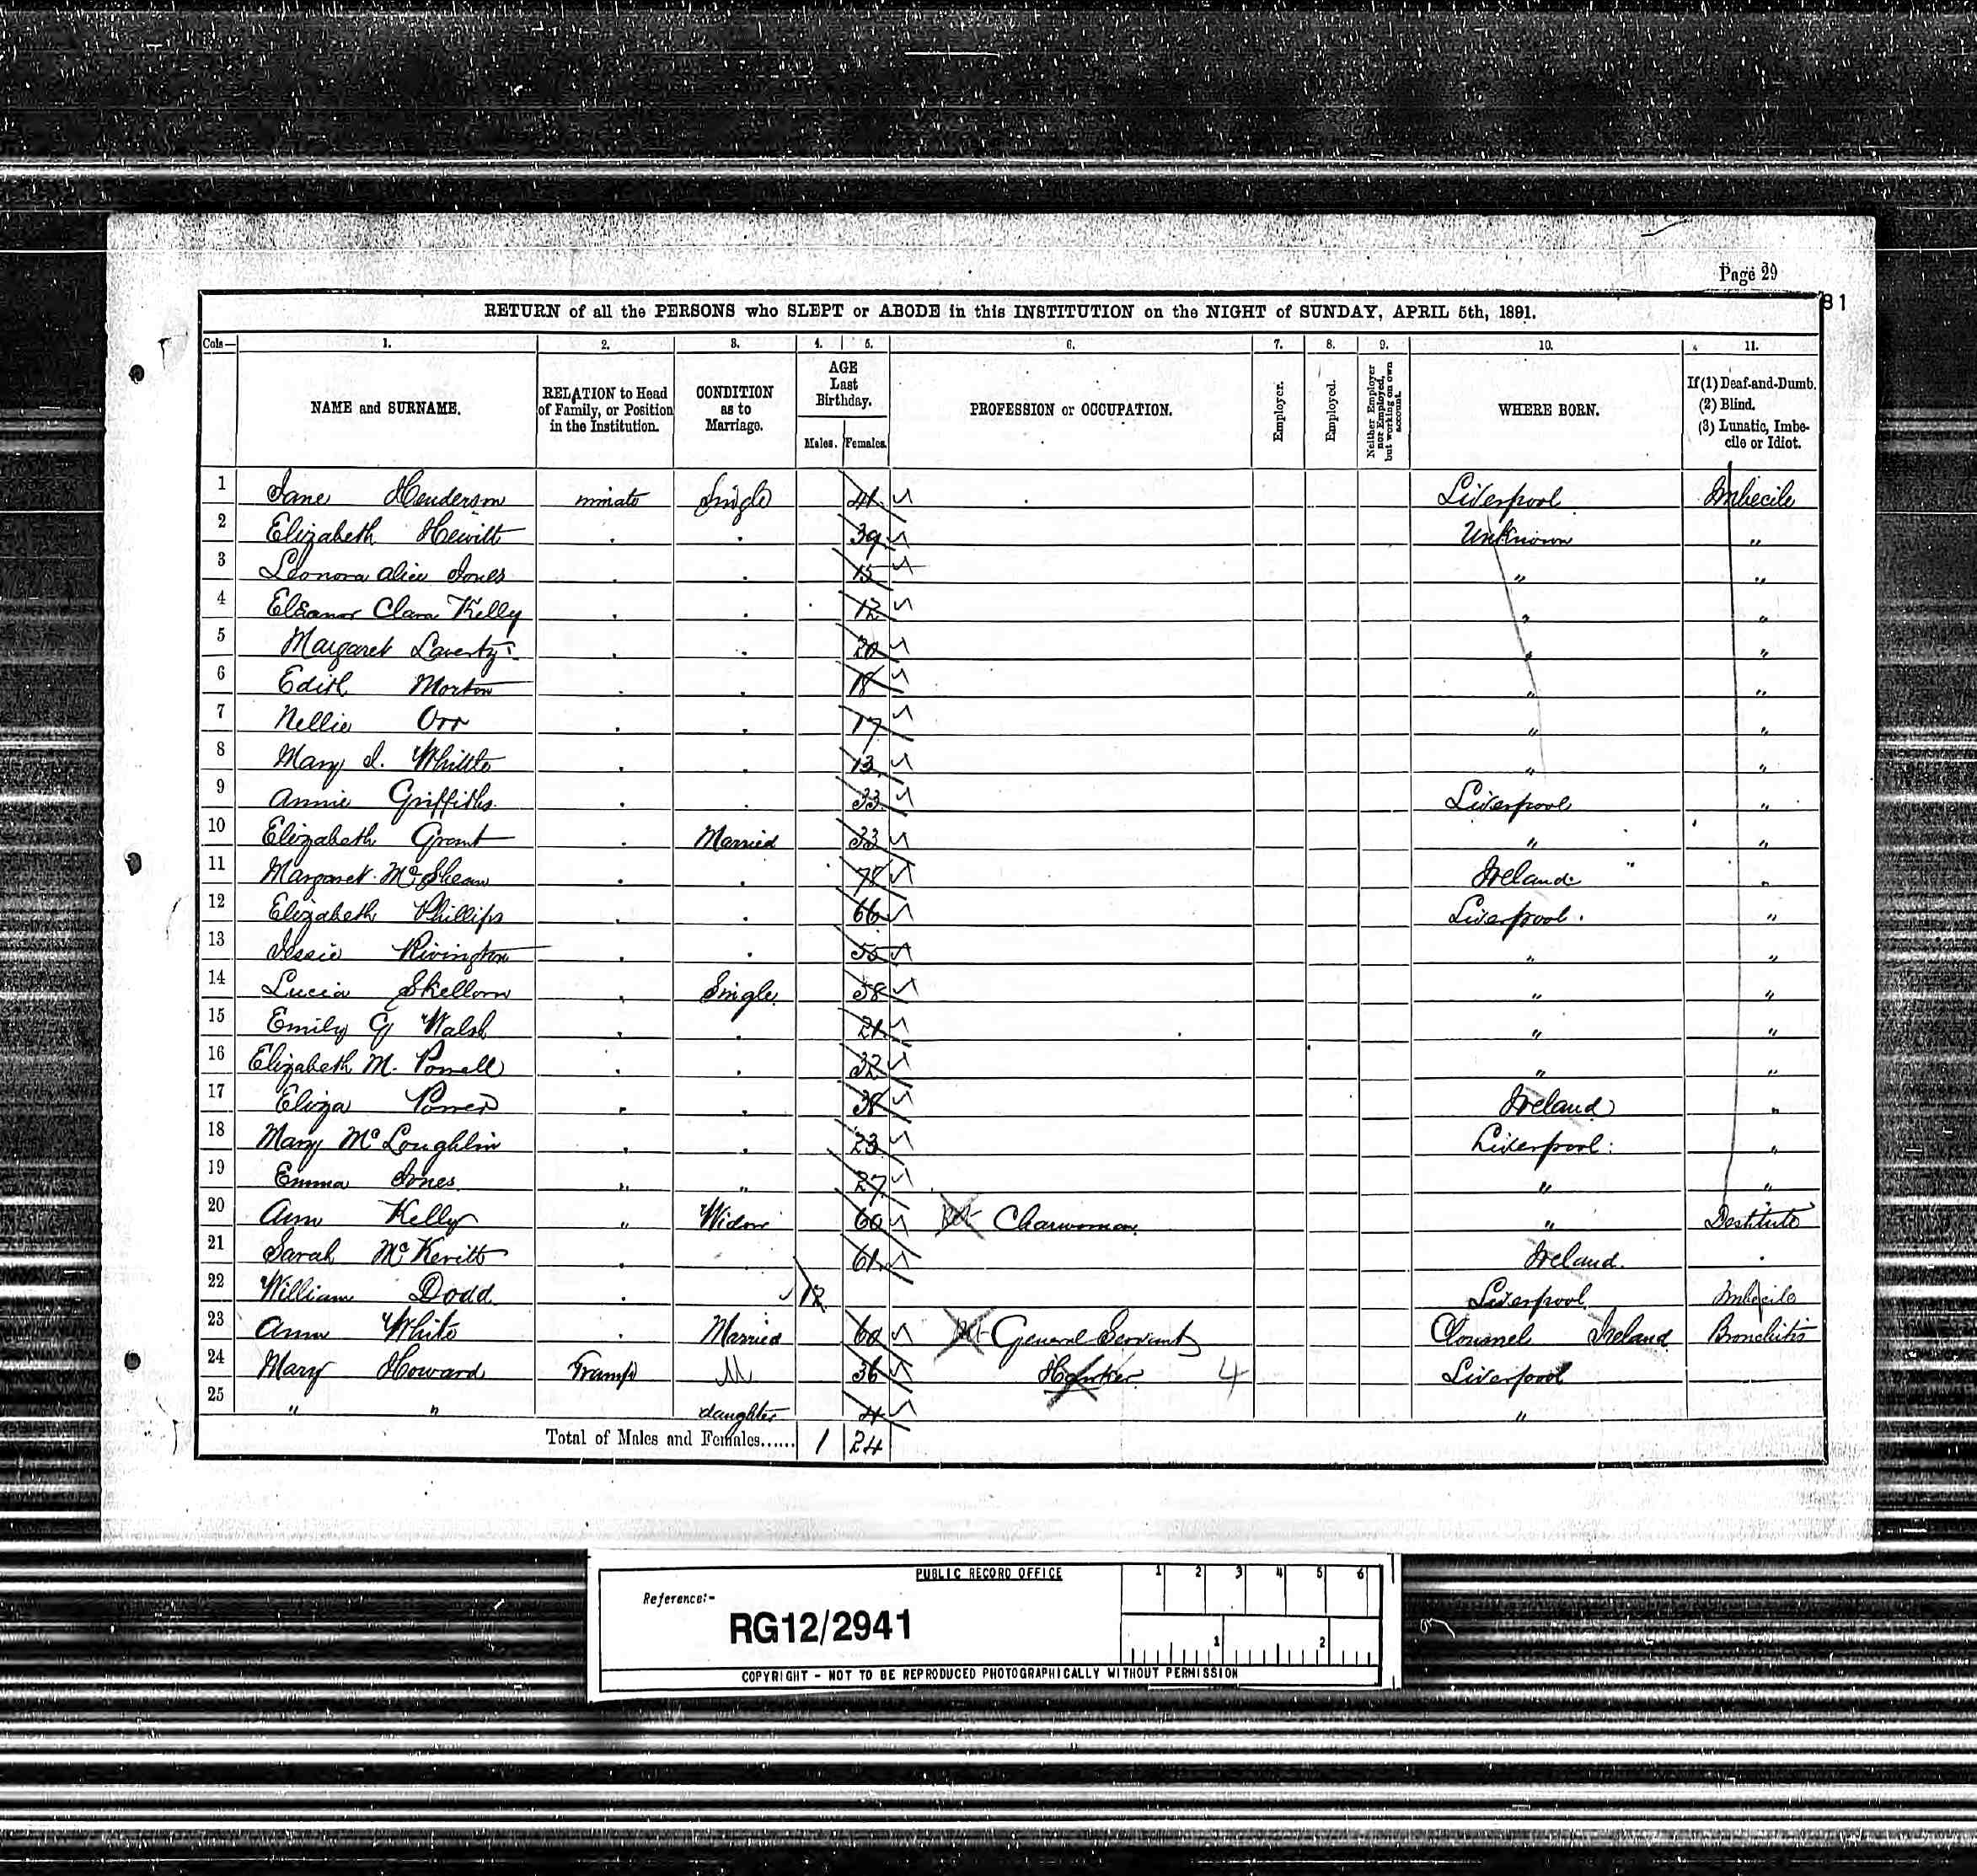 Page 29
81
RETURN of all the PERSONS who SLEPT or ABODE in this INSTITUTION on the NIGHT of SUNDAY, APRIL 5th, 1891.
Cols— 1. 2. 3. 4. 5. 6. 7. 8. 9. 10. 11.
NAME and SURNAME. RELATION to Head of Family, or Position in the Institution. CONDITION as to Marriage. AGE Last Birthday. Males. Females. PROFESSION or OCCUPATION. Employer. Employed. Neither Employer nor Employed, but working on own account. WHERE BORN. If (1) Deaf-and-Dumb. (2) Blind. (3) Lunatic, Imbecile or Idiot.
1 Jane Henderson inmate Single 41 Liverpool Imbecile
2 Elizabeth Hewitt . . 39 Unknown "
3 Leonora Alice Jones . . 15 " "
4 Eleanor Clara Kelly . . 12 " "
5 Margaret Laverty . . 20 " "
6 Edith Morton . . 18 " "
7 Nellie Orr . . 17 " "
8 Mary I. Whittle . . 13 " "
9 Annie Griffiths . . 33 Liverpool "
10 Elizabeth Grant . Married 33 " "
11 Margaret McShean . . 78 Ireland "
12 Elizabeth Phillips . . 66 Liverpool "
13 Jessie Rivington . . 55 " "
14 Lucia Skellorn . Single 58 " "
15 Emily G Walsh . . 21 " "
16 Elizabeth M. Powell . . 32 " "
17 Eliza Power . . 38 Ireland "
18 Mary McLoughlin . . 23 Liverpool "
19 Emma Jones " " 27 " "
20 Ann Kelly " Widow 60 Charwoman " Destitute
21 Sarah McKevitt . 61 Ireland .
22 William Dodd . 12 Liverpool Imbecile
23 Ann White . Married 60 General Servant Clonmel Ireland Bronchitis
24 Mary Howard Tramp M 36 Hawker 4 Liverpool
25 " " daughter 4 "
Total of Males and Females...... 1 24
PUBLIC RECORD OFFICE
1 2 3 4 5 6
Reference:-
RG12/2941
1 2
COPYRIGHT - NOT TO BE REPRODUCED PHOTOGRAPHICALLY WITHOUT PERMISSION